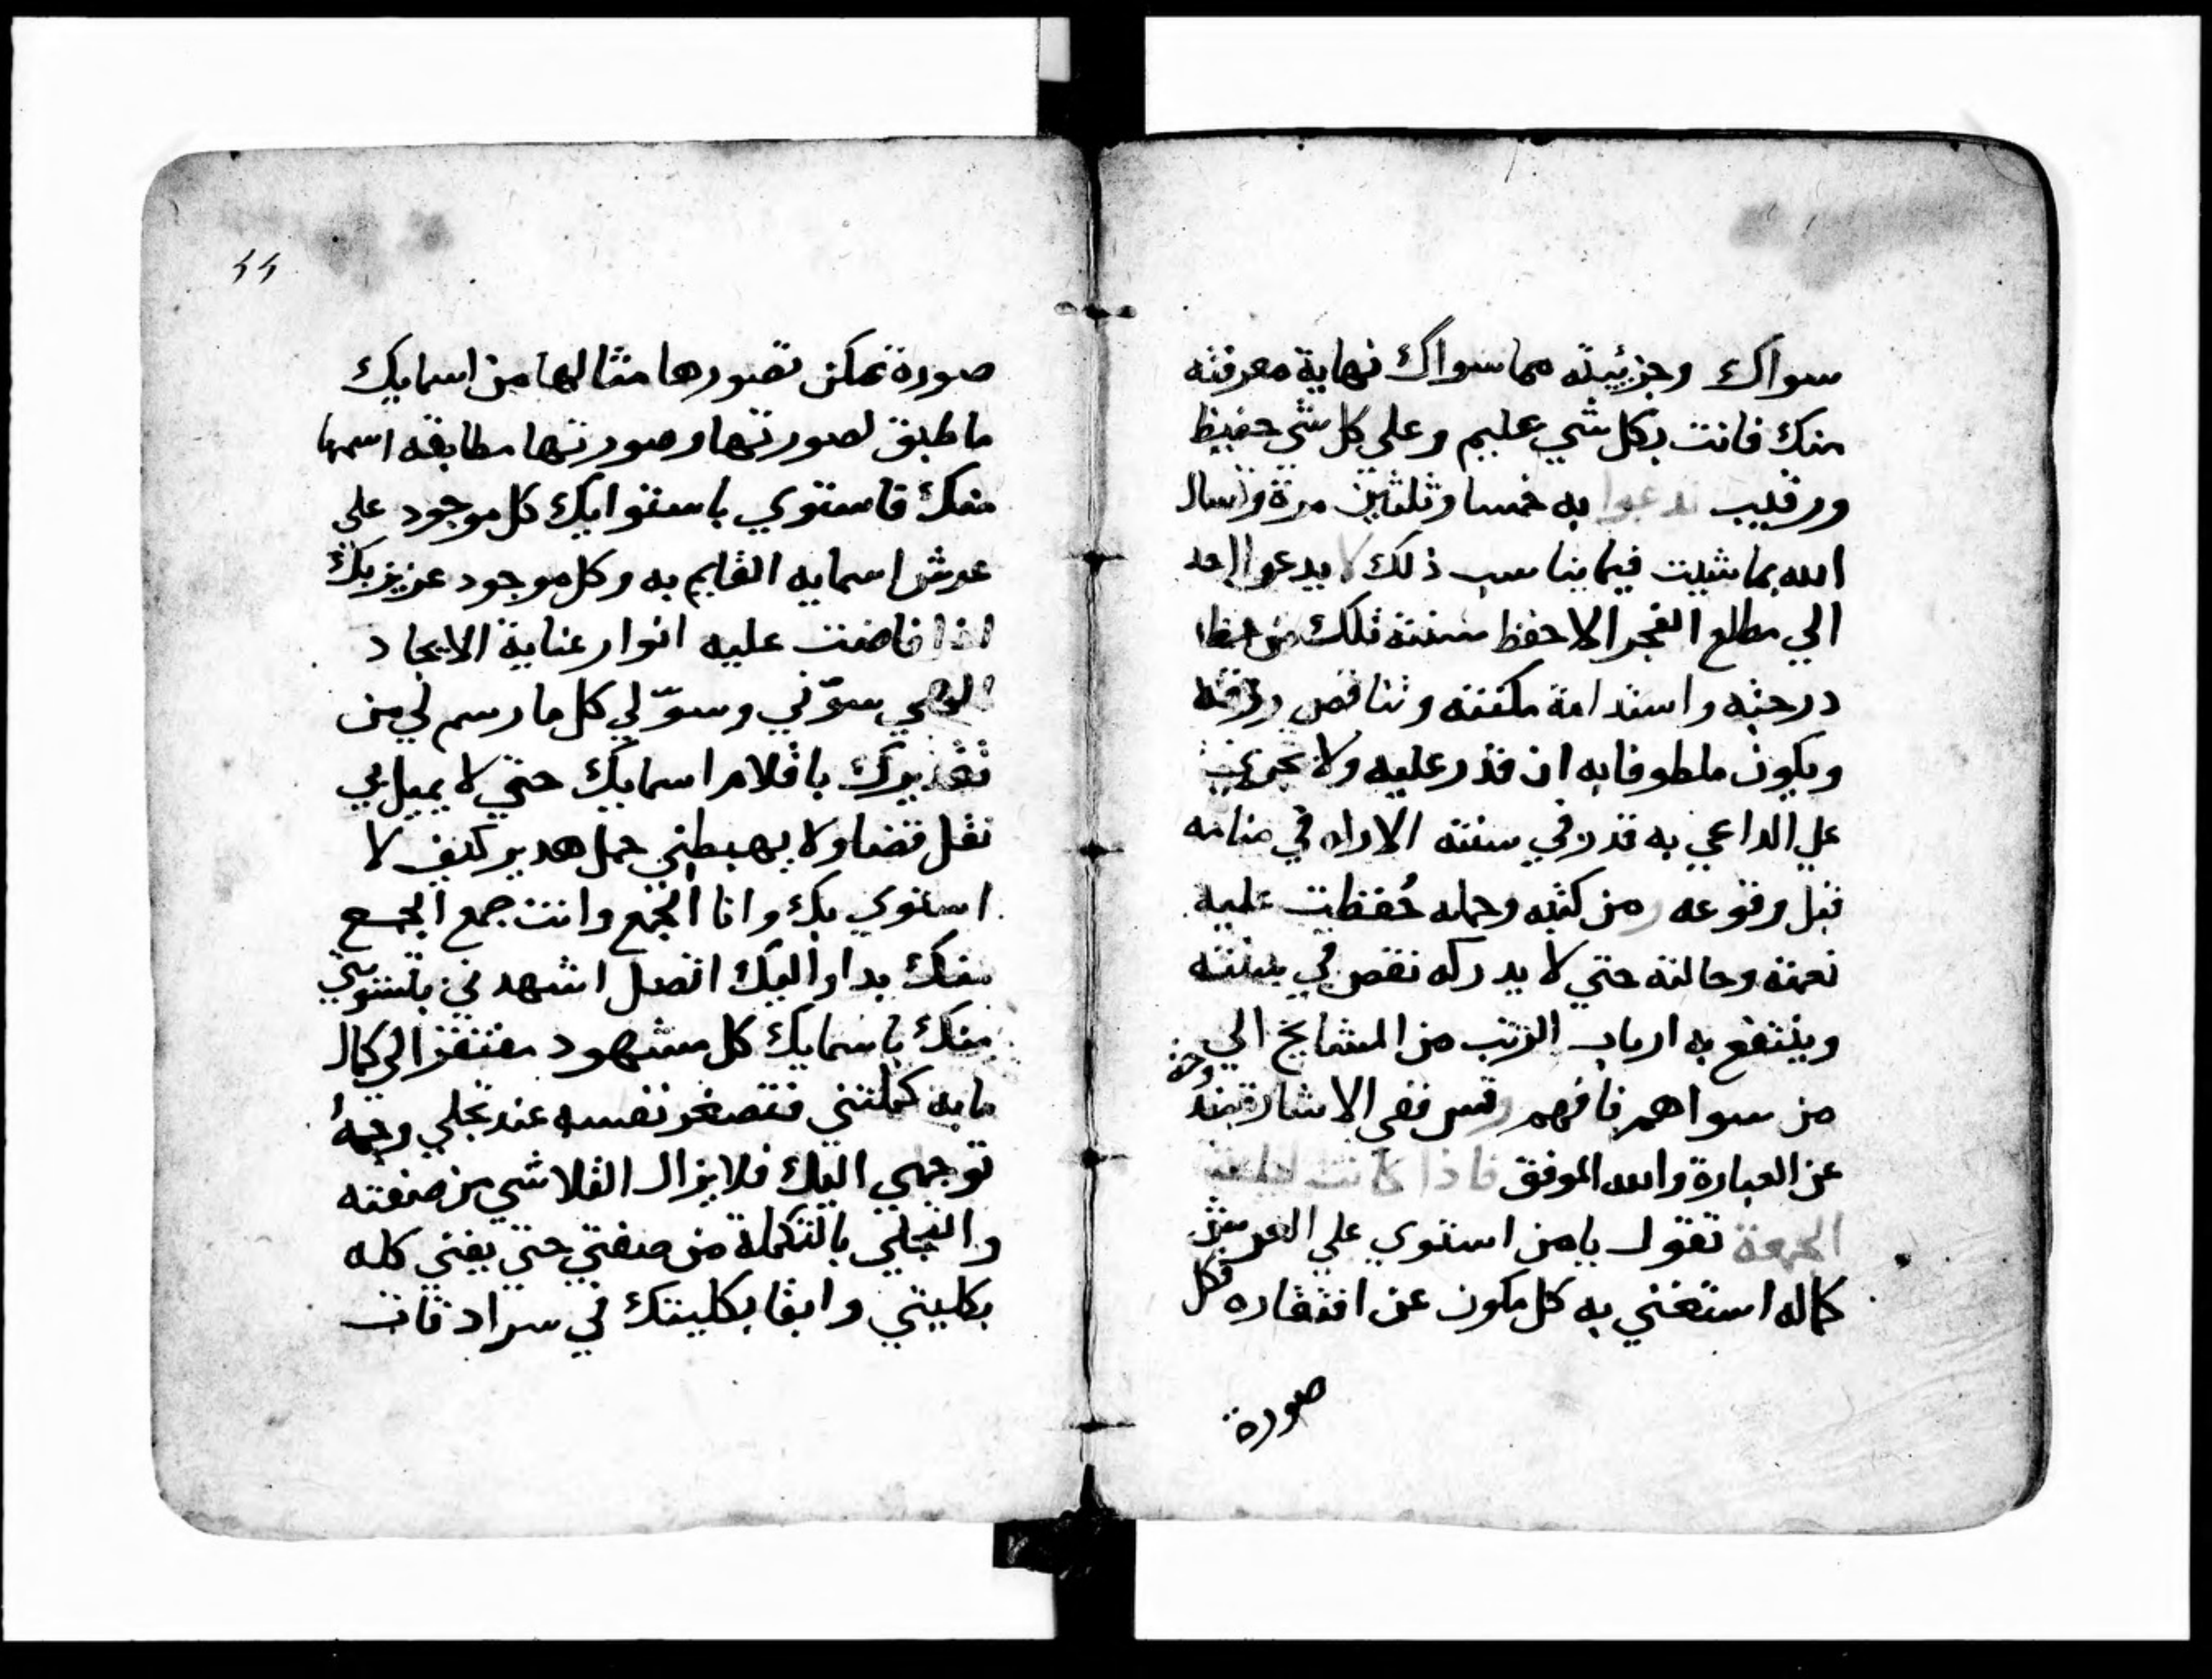 سواك وجزئيته مما سواك نهاية معرفته
منك فانت بكل شي عليم وعلى كل شي حفيظ
ورقيب تدعوا به خمسا وثلثين مرة وتسال
الله بما شيت فيما يناسب ذلك لا يدعوا احد
الي مطلع الفجر الا حفظ سنته تلك من حط
درجته واستدامة مكنته وتناقص رزقه
ويكون ملطوفا به ان قدر عليه ولا يجري
علي الداعي به قدر في سنته الا اراه في منامه
قبل وقوعه ومن كتبه وحمله حُفظت عليه
نعمته وحالته حتي لا يدركه نقص في سنته
وينتفع به ارباب الرتب من المشايخ الي
من سواهم فافهم وقس ففي الاشارة مندوحة
عن العبارة والله الموفق فاذا كانت ليلة
الجمعة تقول يا من استوي علي العرش
كماله استغني به كل مكون عن افتقاره فكل
صورة
٤٤
صورة يمكن تصورها مثالها من اسمايك
ما طبق لصورتها وصورتها مطابقه اسمها
منك فاستوي باستوايك كل موجود على
عرش اسمايه القايم به وكل موجود عزيز بك
اذا فاضت عليه انوار عناية الايجاد
الهي سوّني وسوّ لي كل ما رسم لي من
تقديرك باقلام اسمايك حتي لا يميل بي
ثقل قضا ولا يهبطني حمل هدير كيف لا
استوي بك وانا الجمع وانت جمع الجمع
منك بدا واليك اتصل اشهدني بتسويتي
منك باسمايك كل مشهود مفتقر الي كمال
ما به كملتني فتصغر نفسه عند تجلي وجهةُ
توجهي اليك فلا يزال التلاشي من صفته
والتجلي بالتكملة من صفتي حتي يفني كله
بكليتي وابقا بكليتك في سرادقات